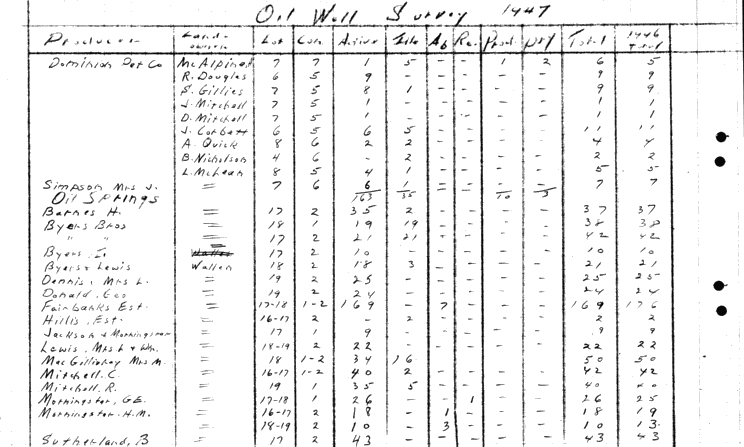 Oil Well Survey 1947
Producer Land-owner Lot Con. Active Idle Ab Re. Prod. Dry Total 1946 Total
Dominion Pet Co McAlpine 7 7 1 5 - - 1 2 6 5
R. Douglas 6 5 9 - - - - - 9 9
S. Gillies 7 5 8 1 - - - - 9 9
J. Mitchell 7 5 1 - - - - - 1 1
D. Mitchell 7 5 1 - - - - - 1 1
J. Corbett 6 5 6 5 - - - - 11 11
A. Quick 8 6 2 2 - - - - 4 4
B. Nicholson 4 6 - 2 - - - - 2 2
L. McLean 8 5 4 1 - - - - 5 5
Simpson Mrs J. = 7 6 6 1 - - - - 7 7
Oil Springs 163 35 10 3
Barnes H. = 17 2 35 2 - - - - 37 37
Byers Bros = 18 1 19 19 - - - - 38 38
" " = 17 2 21 21 - - - - 42 42
Byers. I. 17 2 10 - - - - 10 10
Byers & Lewis Wallen 18 2 18 3 - - - - 21 21
Dennis, Mrs L. = 19 2 25 - - - - - 25 25
Donald. Geo = 19 2 24 - - - - - 24 24
Fairbanks Est. = 17-18 1-2 169 - 7 - - - 169 176
Hillis. Est. = 16-17 2 - 2 - - - - 2 2
Jackson & Morningstar = 17 1 9 - - - - - 9 9
Lewis. Mrs L & Wm. = 18-19 2 22 - - - - - 22 22
MacGillivray Mrs M. = 18 1-2 34 16 - - - - 50 50
Mitchell. C. = 16-17 1-2 40 2 - - - - 42 42
Mitchell. R. = 19 1 35 5 - - - - 40 40
Morningstar, G.E. = 17-18 1 26 - - 1 - - 26 25
Morningstar. H.M. = 16-17 2 18 - 1 - - - 18 19
18-19 2 10 - 3 - - - 10 13
Sutherland, B = 17 2 43 - - - - - 43 43